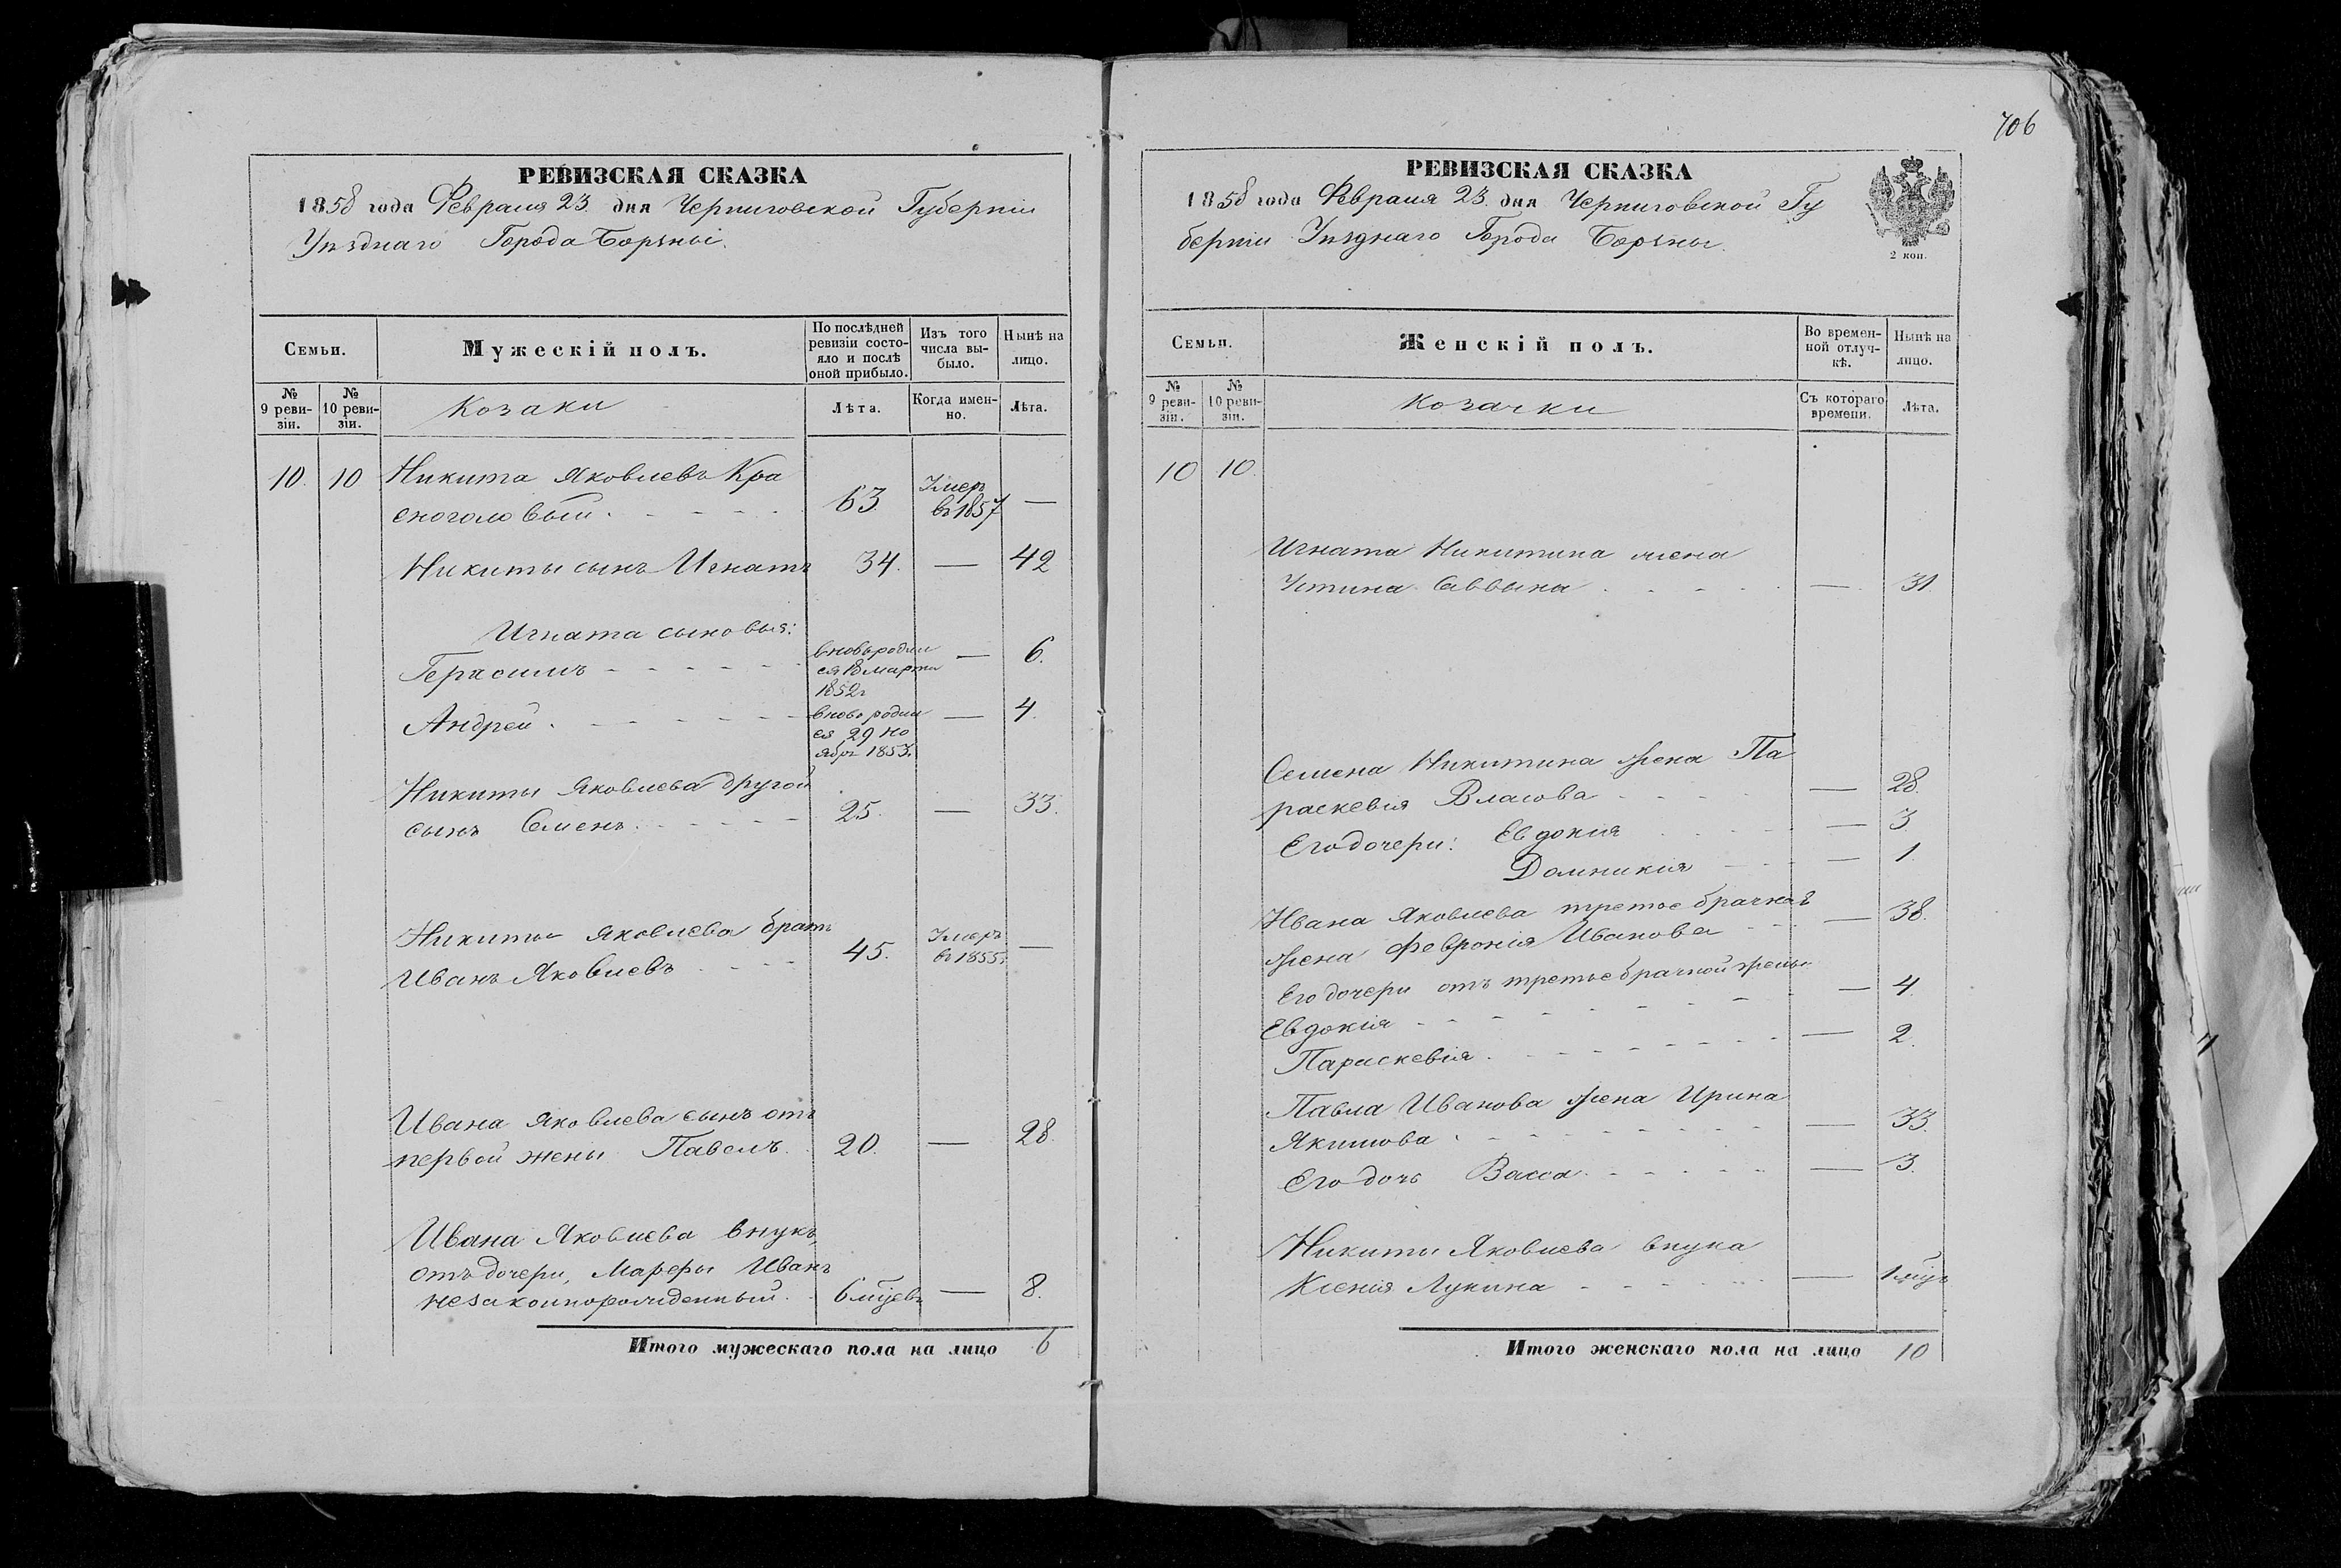 РЕВИЗСКАЯ СКАЗКА
1858 года Февраля 23 дня Черниговской Губерніи
Уѣзднаго Города Борзны.
Семьи.
Мужескій полъ.
По послѣдней ревизіи состояло и послѣ оной прибыло.
Изъ того числа выбыло.
Ныне на лицо.
№ 9 ревизіи.
№ 10 ревизіи.
Козаки
Лѣта.
Когда именно.
Лѣта.
10. 10 Никита Яковлевъ Кра
сноголовый. 63. Умеръ въ 1857 —
Никиты сынъ Игнатъ 34. — 42
Игната сыновья:
Герасимъ вновь родился 18 марта 1852 г — 6.
Андрей вновь родился 29 ноябр. 1853 г. — 4.
Никиты Яковлева другой
сынъ Семенъ. 25. — 33.
Никиты Яковлева братъ
Иванъ Яковлевъ 45. Умеръ въ 1855 г. —
Ивана Яковлева сынъ отъ
первой жены Павелъ. 20. — 28.
Ивана Яковлева внукъ,
отъ дочери, Марфы Иванъ
незаконнорожденный. 6 м̃цевъ — 8.
Итого мужескаго пола на лицо 6
706
РЕВИЗСКАЯ СКАЗКА
1858 года Февраля 23. дня Черниговской Гу
берніи Уѣзднаго Города Борзны.
2 коп.
Семьи.
Женскій полъ.
Во временной отлучкѣ.
Нынѣ на лицо.
№ 9 ревизіи.
№ 10 ревизіи.
Козачки
Съ котораго времени.
Лѣта.
10 10.
Игната Никитина жена
Устина Саввына — 31.
Семена Никитина жена Па
раскевія Власова — 28.
Его дочери: Евдокія — 3
Домникія — 1.
Ивана Яковлева третьебрачная
жена Февронія Иванова — 38.
Его дочери отъ третьебрачной жены
Евдокія — 4.
Параскевія — 2.
Павла Иванова жена Ирина
Якимова — 33.
Его дочь Васса — 3.
Никиты Яковлева внука
Ксенія Лукина — 1 м̃цъ
Итого женскаго пола на лицо 10